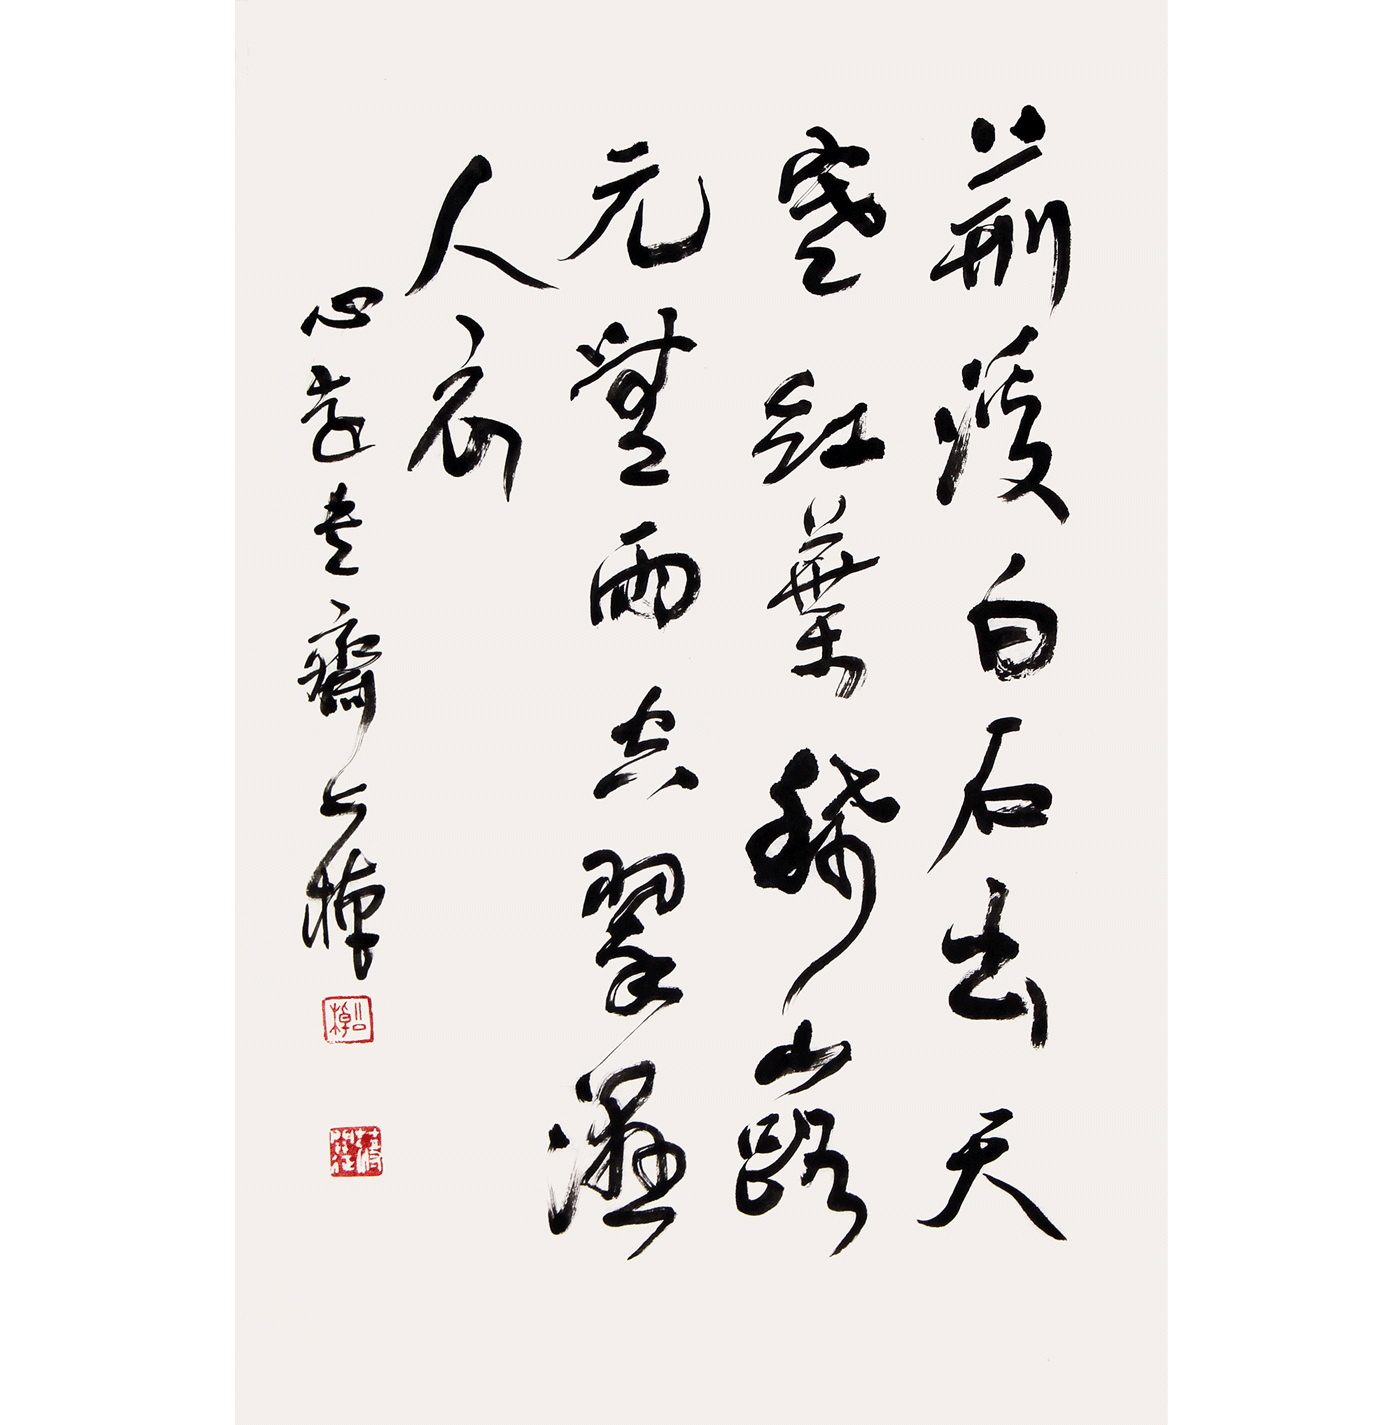 荊溪白石出天
寒紅葉稀山路
元無雨空翠濕
人衣
心遠書齋